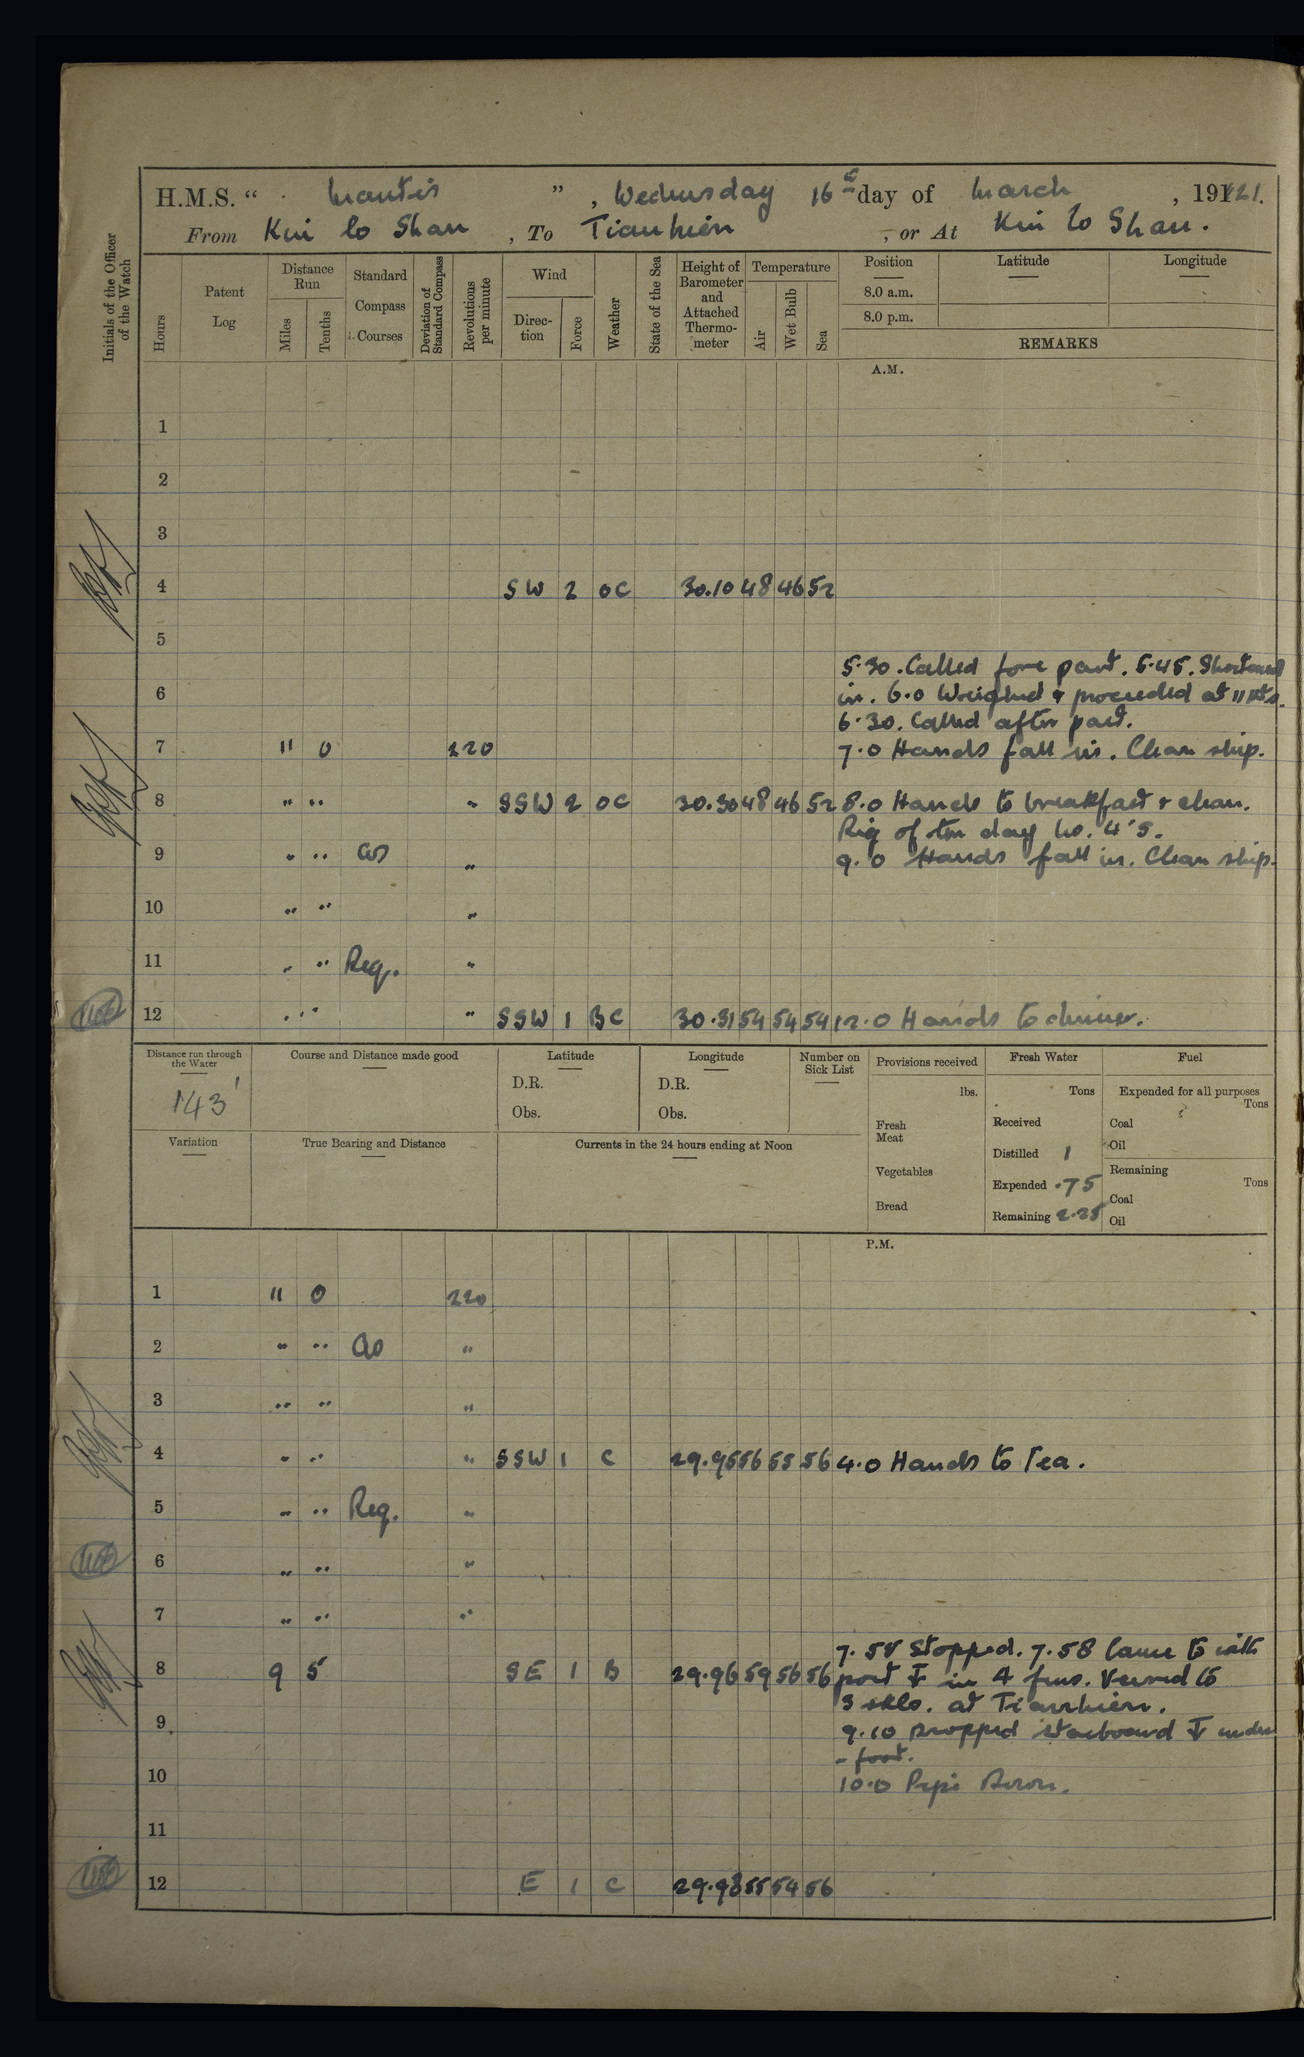 H.M.S. " Mantis ", Wednesday 16th day of March, 1921.
From Kui lo Shan, To Tianhien, or At Kui lo Shan.
Initials of the Officer of the Watch
Hours
Patent Log
Distance Run
Miles
Tenths
Standard Compass Courses
Deviation of Standard Compass
Revolutions per minute
Wind
Direction
Force
Weather
State of the Sea
Height of Barometer and Attached Thermometer
Temperature
Air
Wet Bulb
Sea
Position
8.0 a.m.
8.0 p.m.
Latitude
Longitude
REMARKS
A.M.
1
2
3
4 SW 2 OC 30.10 48 46 52
5
5.30. Called fore part. 5.45. Shortened
6 in. 6.0 Weighed & proceeded at 11 kts.
6.30. Called after part.
7 11 0 220 7.0 Hands fall in. Clean ship.
8 " " " SSW 2 OC 30.30 48 46 52 8.0 Hands to breakfast & clean.
Rig of the day No. 4's.
9 " " as " 9.0 Hands fall in. Clean ship.
10 " " "
11 " " Req. "
12 " " " SSW 1 BC 30.31 54 54 54 12.0 Hands to dinner.
Distance run through the Water
143'
Course and Distance made good
Latitude
D.R.
Obs.
Longitude
D.R.
Obs.
Number on Sick List
Provisions received
lbs.
Fresh Meat
Vegetables
Bread
Fresh Water
Tons
Received
Distilled 1
Expended .75
Remaining 2.25
Fuel
Expended for all purposes
Tons
Coal
Oil
Remaining
Tons
Coal
Oil
Variation
True Bearing and Distance
Currents in the 24 hours ending at Noon
P.M.
1 11 0 220
2 " " as "
3 " " "
4 " " " SSW 1 C 29.95 56 55 56 4.0 Hands to Tea.
5 " " Req. "
6 " " "
7 " " "
7.55 Stopped. 7.58 Came to with
8 9 5 SE 1 B 29.96 59 56 56 port ⚓ in 4 fms. Veered to
3 skls. at Tianhien.
9 9.10 Dropped starboard ⚓ under
- foot.
10 10.0 Pipe Down.
11
12 E 1 C 29.98 55 54 56